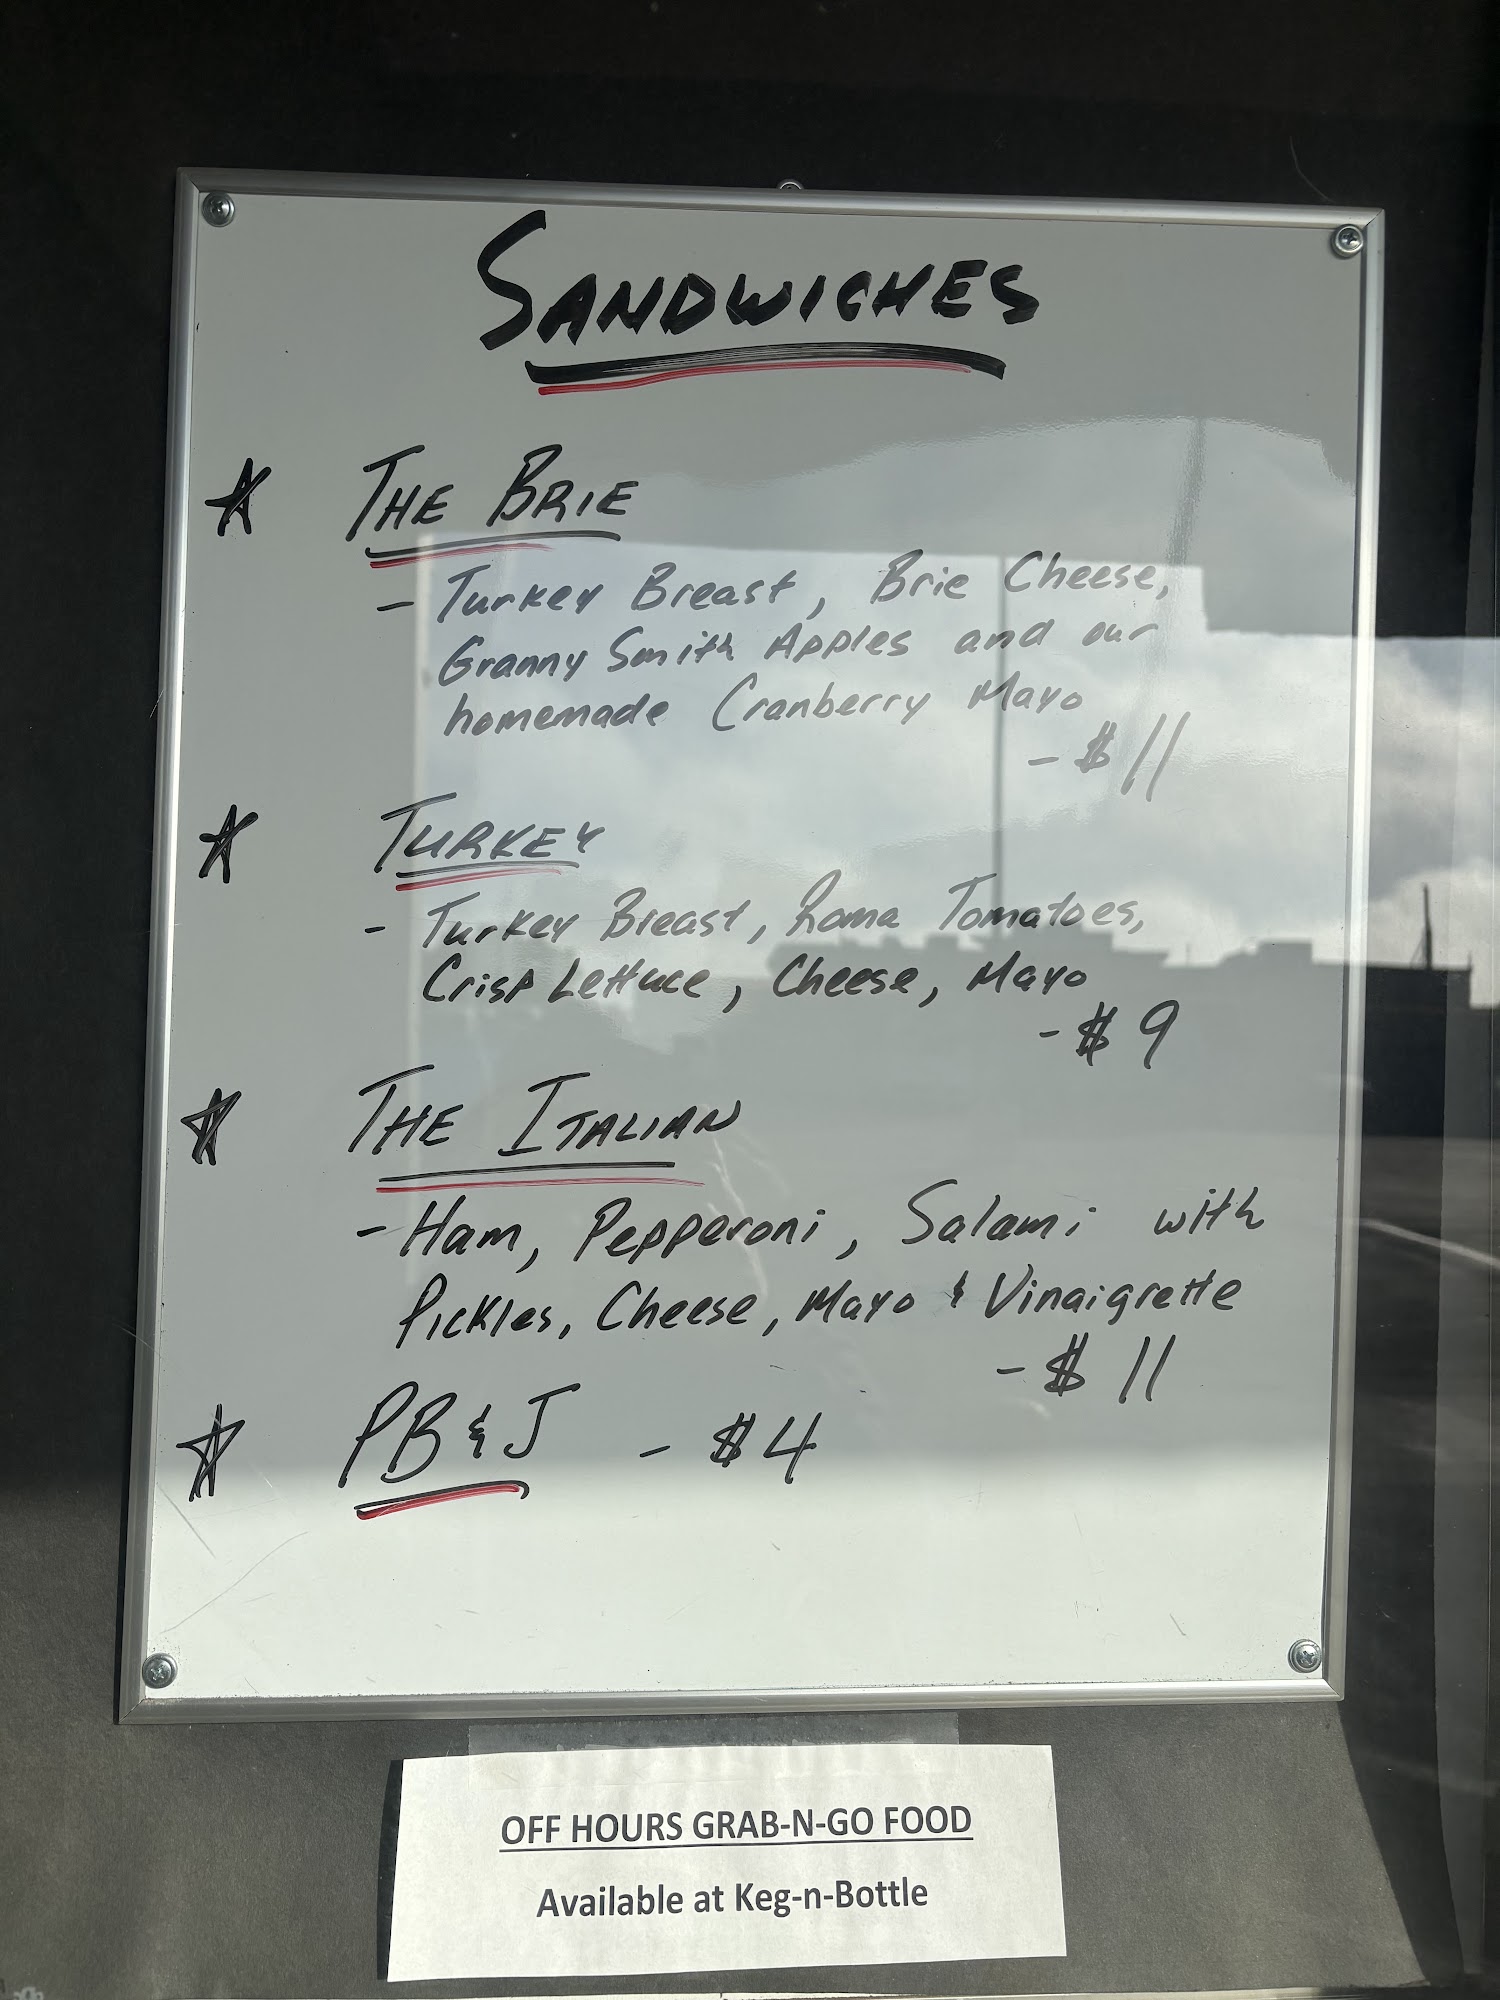 SANDWICHES
THE BRIE
- Turkey Breast, Brie Cheese,
Granny Smith Apples and our
homemade Cranberry Mayo
- $11
TURKEY
- Turkey Breast, Roma Tomatoes,
Crisp Lettuce, Cheese, Mayo
- $9
THE ITALIAN
- Ham, Pepperoni, Salami with
Pickles, Cheese, Mayo & Vinaigrette
- $11
PB & J - $4
OFF HOURS GRAB-N-GO FOOD
Available at Keg-n-Bottle